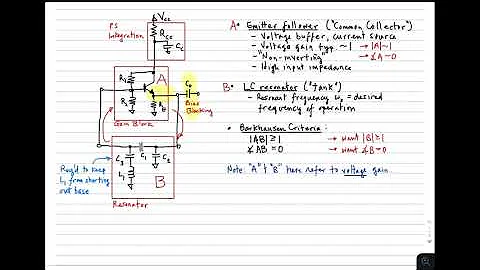 PS
Integration
Vcc
Rcc
Cc
R1
R2
A
RE
Co
Bias
Blocking
Gain Block
C1
C2
C3
L1
B
Req'd to keep
L1 from shorting
out base
Resonator
A • Emitter follower ("Common Collector")
- Voltage buffer, current source
- Voltage gain typ. ~1 → |A|~1
- "Non-inverting" → ∡A~0
- High input impedance
B • LC resonator ("Tank")
- Resonant frequency ω0 = desired
frequency of operation
• Barkhausen Criteria:
|AB| ≥ 1 → want |B| ≥ 1
∡AB = 0 → want ∡B = 0
Note: "A" & "B" here refer to voltage gain